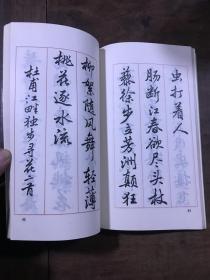 虫打着人
肠断江春欲尽头杖
藜徐步立芳洲颠狂
柳絮随风舞轻薄
桃花逐水流
杜甫江畔独步寻花二首